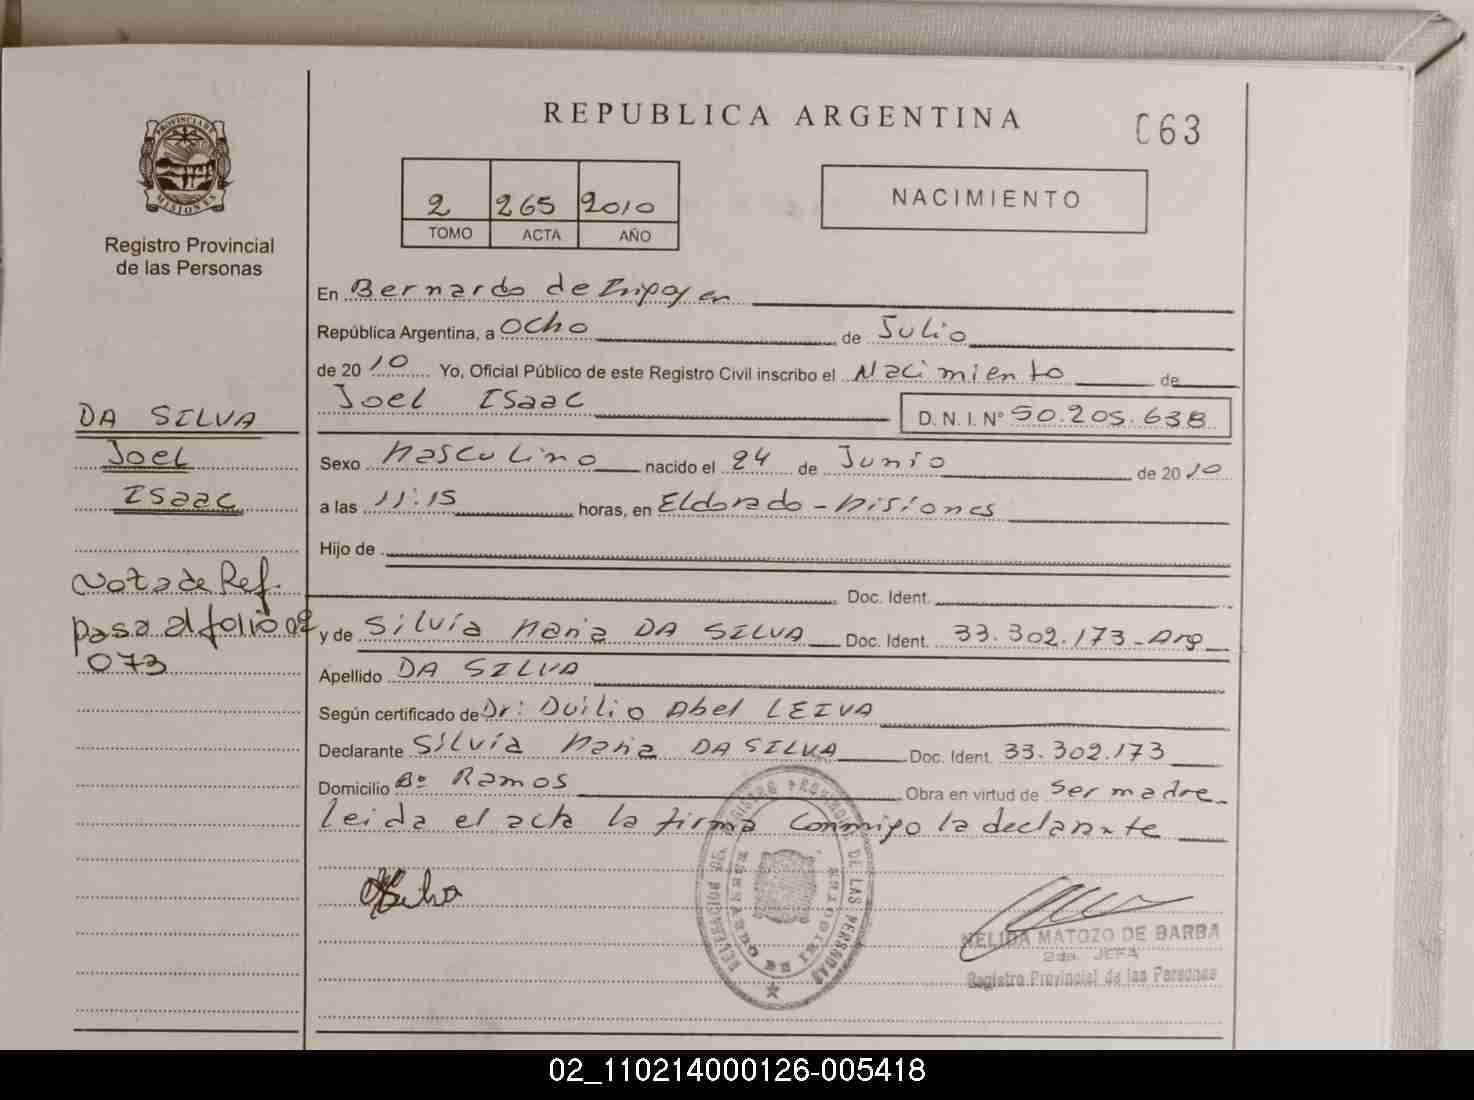 REPUBLICA ARGENTINA
C63
PROVINCIA DE
MISIONES
Registro Provincial
de las Personas
2 265 2010
TOMO ACTA AÑO
NACIMIENTO
En Bernardo de Irigoyen
República Argentina, a Ocho de Julio
de 2010 Yo, Oficial Público de este Registro Civil inscribo el Nacimiento de
Joel Isaac D. N. I. N° 50.205.638
Sexo Masculino nacido el 24 de Junio de 2010
a las 11:15 horas, en Eldorado - Misiones
Hijo de
Doc. Ident.
y de Silvia Maria DA SILVA Doc. Ident. 33.302.173-Arg
Apellido DA SILVA
Según certificado de Dr: Duilio Abel LEIVA
Declarante Silvia Maria DA SILVA Doc. Ident. 33.302.173
Domicilio B° Ramos Obra en virtud de ser madre
leida el acta la firma conmigo la declarante
DA SILVA
Joel
Isaac
Nota de Ref.
pasa al folio n°
073
NELIDA MATOZO DE BARBA
2da. JEFA
Registro Provincial de las Personas
02_110214000126-005418